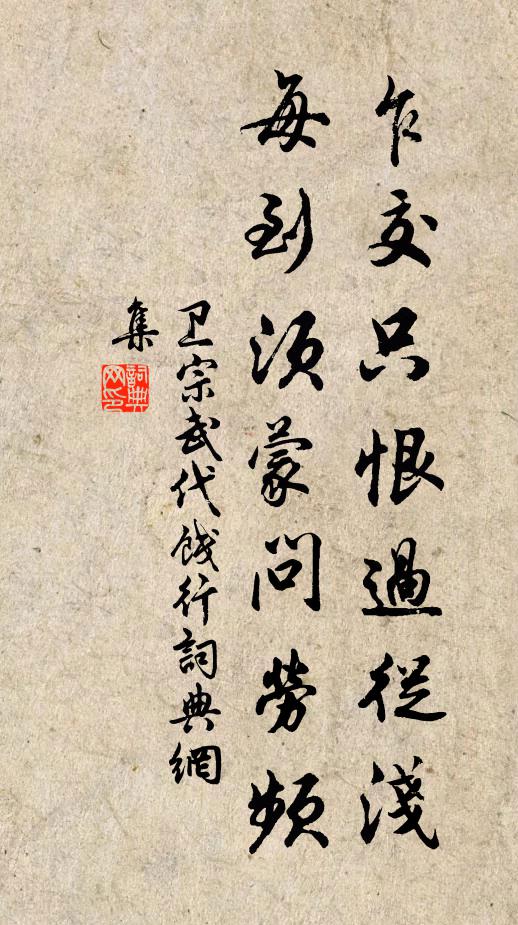 乍交只恨過從淺
每到須蒙問勞頻
卫宗武代餞行詞典網
集
詞典網印